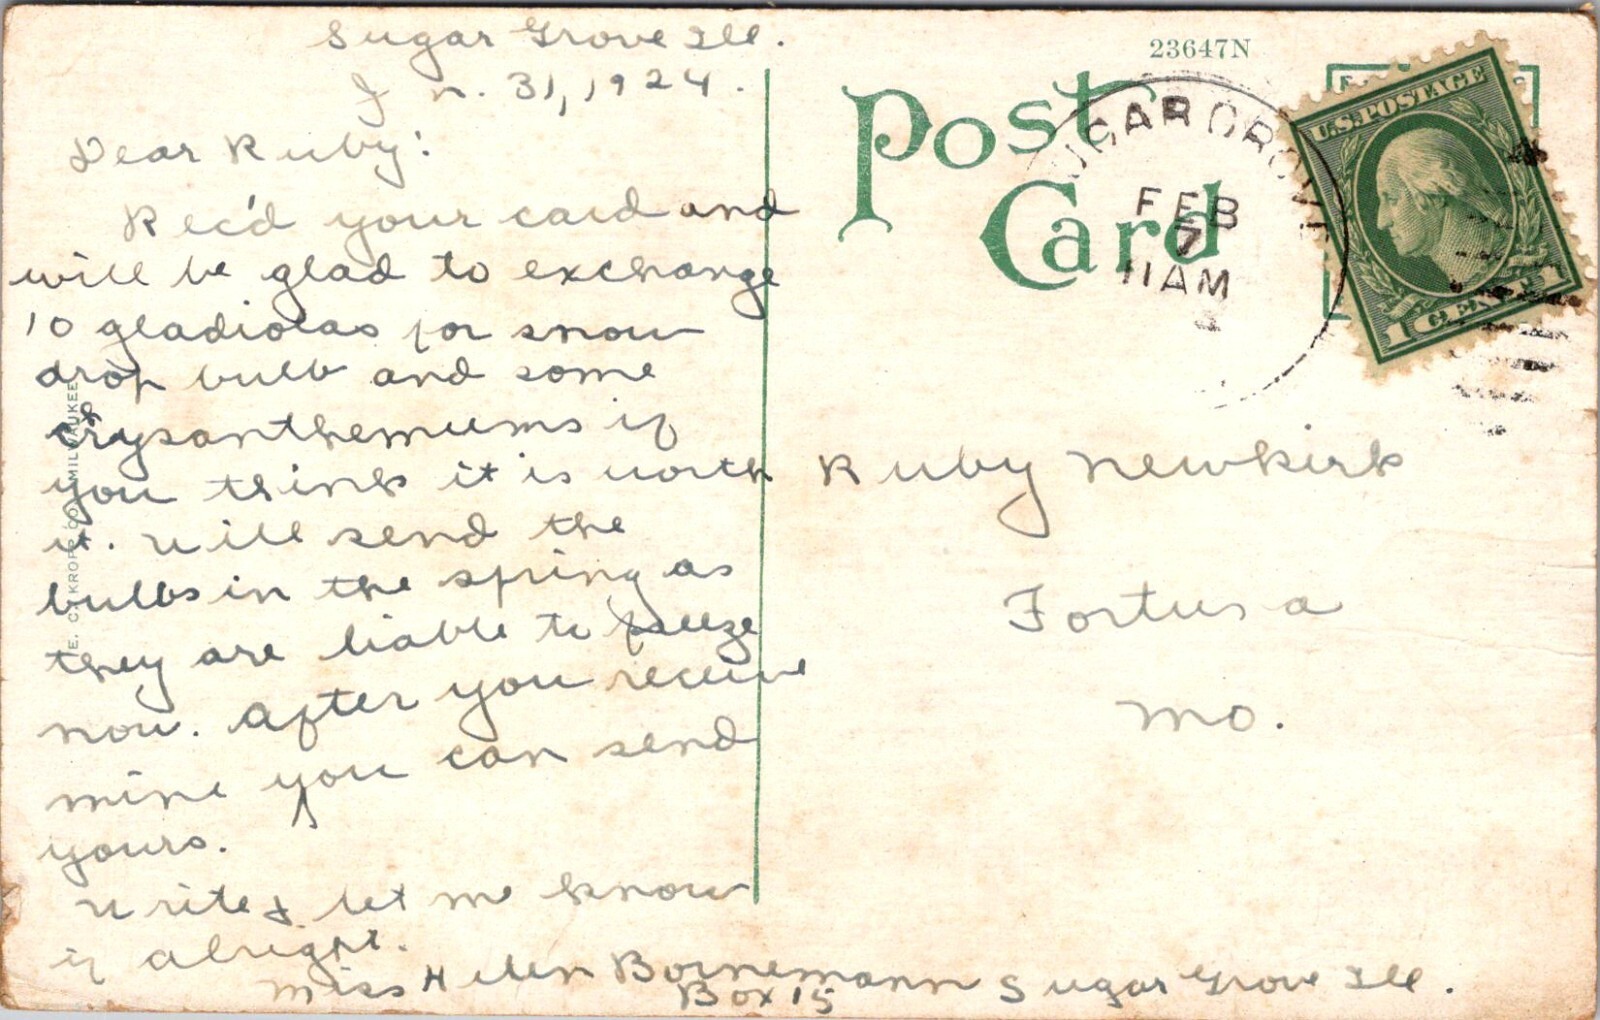 Sugar Grove Ill.
J n. 31, 1924.
Dear Ruby:
Rec'd your card and
will be glad to exchange
10 gladiolas for snow
drop bulb and some
crysanthemums if
you think it is worth
it. Will send the
bulbs in the spring as
they are liable to freeze
now. After you receive
mine you can send
yours.
Write & let me know
if alright.
Miss Helen Bornemann Sugar Grove Ill.
Box 15
E. C. KROPP CO. MILWAUKEE
23647N
Post
Card
SUGAR GROVE
FEB
7
11 AM
U.S. POSTAGE
1 CENT 1
Ruby Newkirk
Fortuna
Mo.